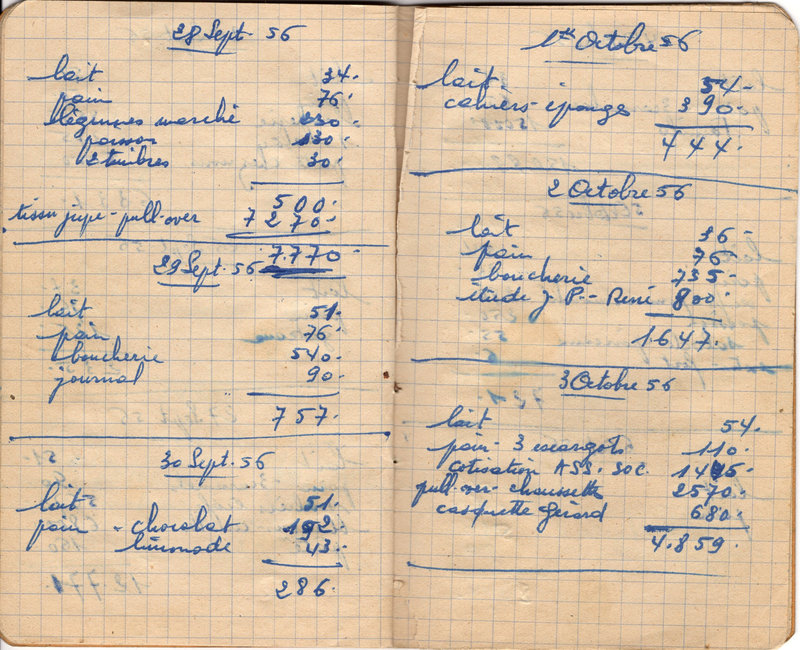 28 Sept. 56
lait 34.
pain 76.
légumes marché 230.
poisson 130.
2 timbres 30.
500.
tissu jupe - pull-over 7270.
7.770
29 Sept. 56
lait 51.
pain 76.
boucherie 540.
journal 90.
757.
30 Sept. 56
lait 51.
pain - chocolat 192.
limonade 43.
286.
1er Octobre 56
lait 54.
cahiers - éponges 390.
444.
2 Octobre 56
lait 36.
pain 76.
boucherie 735.
étude J. P. - René 800.
1.647.
3 Octobre 56
lait 54.
pain - 3 escargots 110.
cotisation ASS. SOC. 1445.
pull-over - chaussette 2570.
casquette Gerard 680.
4.859.